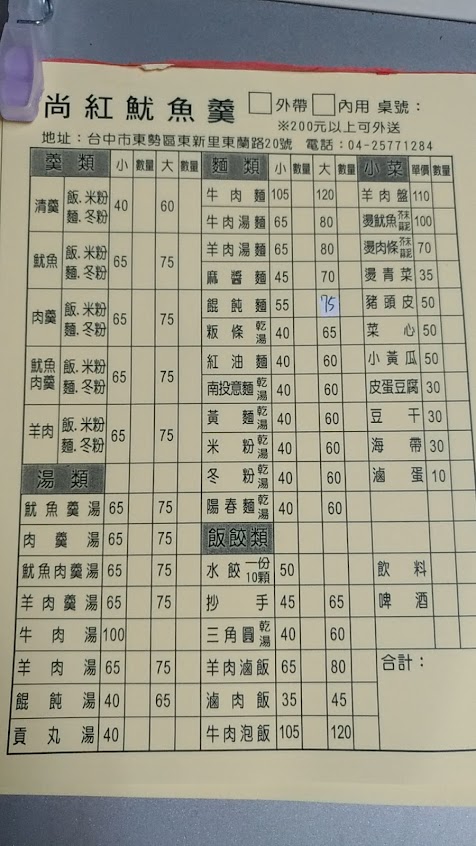 尚紅魷魚羹 □外帶 □內用 桌號：
※200元以上可外送
地址：台中市東勢區東新里東蘭路20號 電話：04-25771284
羹類 小 數量 大 數量
清羹 飯.米粉 麵.冬粉 40 60
魷魚 飯.米粉 麵.冬粉 65 75
肉羹 飯.米粉 麵.冬粉 65 75
魷魚肉羹 飯.米粉 麵.冬粉 65 75
羊肉 飯.米粉 麵.冬粉 65 75
湯類
魷魚羹湯 65 75
肉羹湯 65 75
魷魚肉羹湯 65 75
羊肉羹湯 65 75
牛肉湯 100
羊肉湯 65 75
餛飩湯 40 65
貢丸湯 40
麵類 小 數量 大 數量
牛肉麵 105 120
牛肉湯麵 65 80
羊肉湯麵 65 80
麻醬麵 45 70
餛飩麵 55 75
粄條 乾湯 40 65
紅油麵 40 60
南投意麵 乾湯 40 60
黃麵 乾湯 40 60
米粉 乾湯 40 60
冬粉 乾湯 40 60
陽春麵 乾湯 40 60
飯餃類
水餃 一份10顆 50
抄手 45 65
三角圓 乾湯 40 60
羊肉滷飯 65 80
滷肉飯 35 45
牛肉泡飯 105 120
小菜 單價 數量
羊肉盤 110
燙魷魚 芥末 蒜泥 100
燙肉條 芥末 蒜泥 70
燙青菜 35
豬頭皮 50
菜心 50
小黃瓜 50
皮蛋豆腐 30
豆干 30
海帶 30
滷蛋 10
飲料
啤酒
合計：